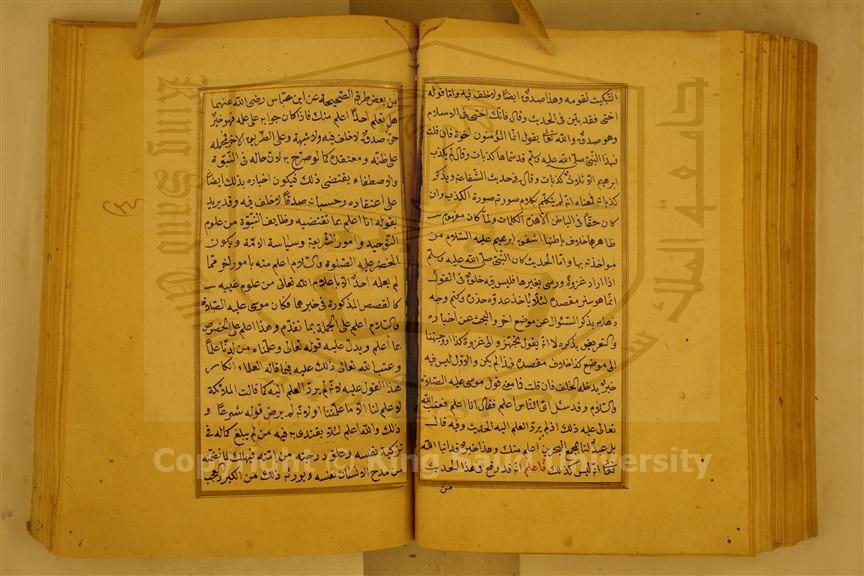 التبكيت لقومه وهذا صدق ايضا ولا خلف فيه واما قوله
اختى فقد بين فى الحديث وقال فانك اختى فى الاسلام
وهو صدق والله تعالى يقول انما المؤمنون اخوة فان قلت
فهذا النبى صلى الله عليه وسلم قد سماها كذبات وقال لم يكذب
ابرهيم الا ثلاث كذبات وقال فى حديث الشفاعة ويذكر
كذباته فمعناه انه لم يتكلم بكلام صورته صورة الكذب وان
كان حقا فى الباطن الا هذه الكلمات ولما كان مفهوم
ظاهرها خلاف باطنها اشفق ابرهيم عليه السلام من
مؤاخذته بها واما الحديث كان النبى صلى الله عليه وسلم
اذا اراد غزوة ورى بغيرها فليس فيه خلف فى القول
انما هو ستر مقصده لئلا يأخذ عدوه حذره وكتم وجه
ذهابه بذكر السؤال عن موضع اخر والبحث عن اخباره
والتعريض بذكره لا انه يقول تجهزوا الى غزوة كذا او وجهتنا
الى موضع كذا خلاف مقصده فهذا لم يكن والاول ليس فيه
خبر يدخله الخلف فان قلت فما معنى قول موسى عليه الصلاة
والسلام وقد سئل اى الناس اعلم فقال انا اعلم فعتب الله
تعالى عليه ذلك اذ لم يرد العلم اليه الحديث وفيه قال
بل عبد لنا بمجمع البحرين اعلم منك وهذا خبر قد انبأ الله
تعالى انه ليس كذلك فاعلم انه قد وقع فى هذا الحديث
من
من بعض طرقه الصحيحة عن ابن عباس رضى الله عنهما
هل تعلم احدا اعلم منك فاذا كان جوابه على علمه فهو خبر
حق وصدق لا خلف فيه ولا شبهة وعلى الطريق الاخر فمحمله
على ظنه ومعتقده كما لو صرح به لان حاله فى النبوة
والاصطفاء يقتضى ذلك فيكون اخباره بذلك ايضا
على اعتقاده وحسبانه صدقا لا خلف فيه وقد يريد
بقوله انا اعلم بما تقتضيه وظايف النبوة من علوم
التوحيد وامور الشريعة وسياسة الامة ويكون
الخضر عليه الصلوة والسلام اعلم منه بامور اخر مما
لم يعلمه احد الا باعلام الله تعالى من علوم غيبه
كالقصص المذكورة فى خبرهما فكان موسى عليه الصلاة
والسلام اعلم على الجملة بما تقدم وهذا اعلم على الخصوص
بما اعلم ويدل عليه قوله تعالى وعلمناه من لدنا علما
وعتب الله تعالى ذلك عليه فيما قاله العلماء انكار
هذا القول عليه لانه لم يرد العلم اليه كما قالت الملائكة
لا علم لنا الا ما علمتنا او لانه لم يرض قوله شرعا و
ذلك والله اعلم لئلا يقتدى به فيه من لم يبلغ كماله فى
تزكية نفسه وعلو درجته من امته فيهلك لما تضمنه
من مدح الانسان نفسه ويورثه ذلك من الكبر والعجب
Copyright © King Saud University
جامعة الملك
King Saud